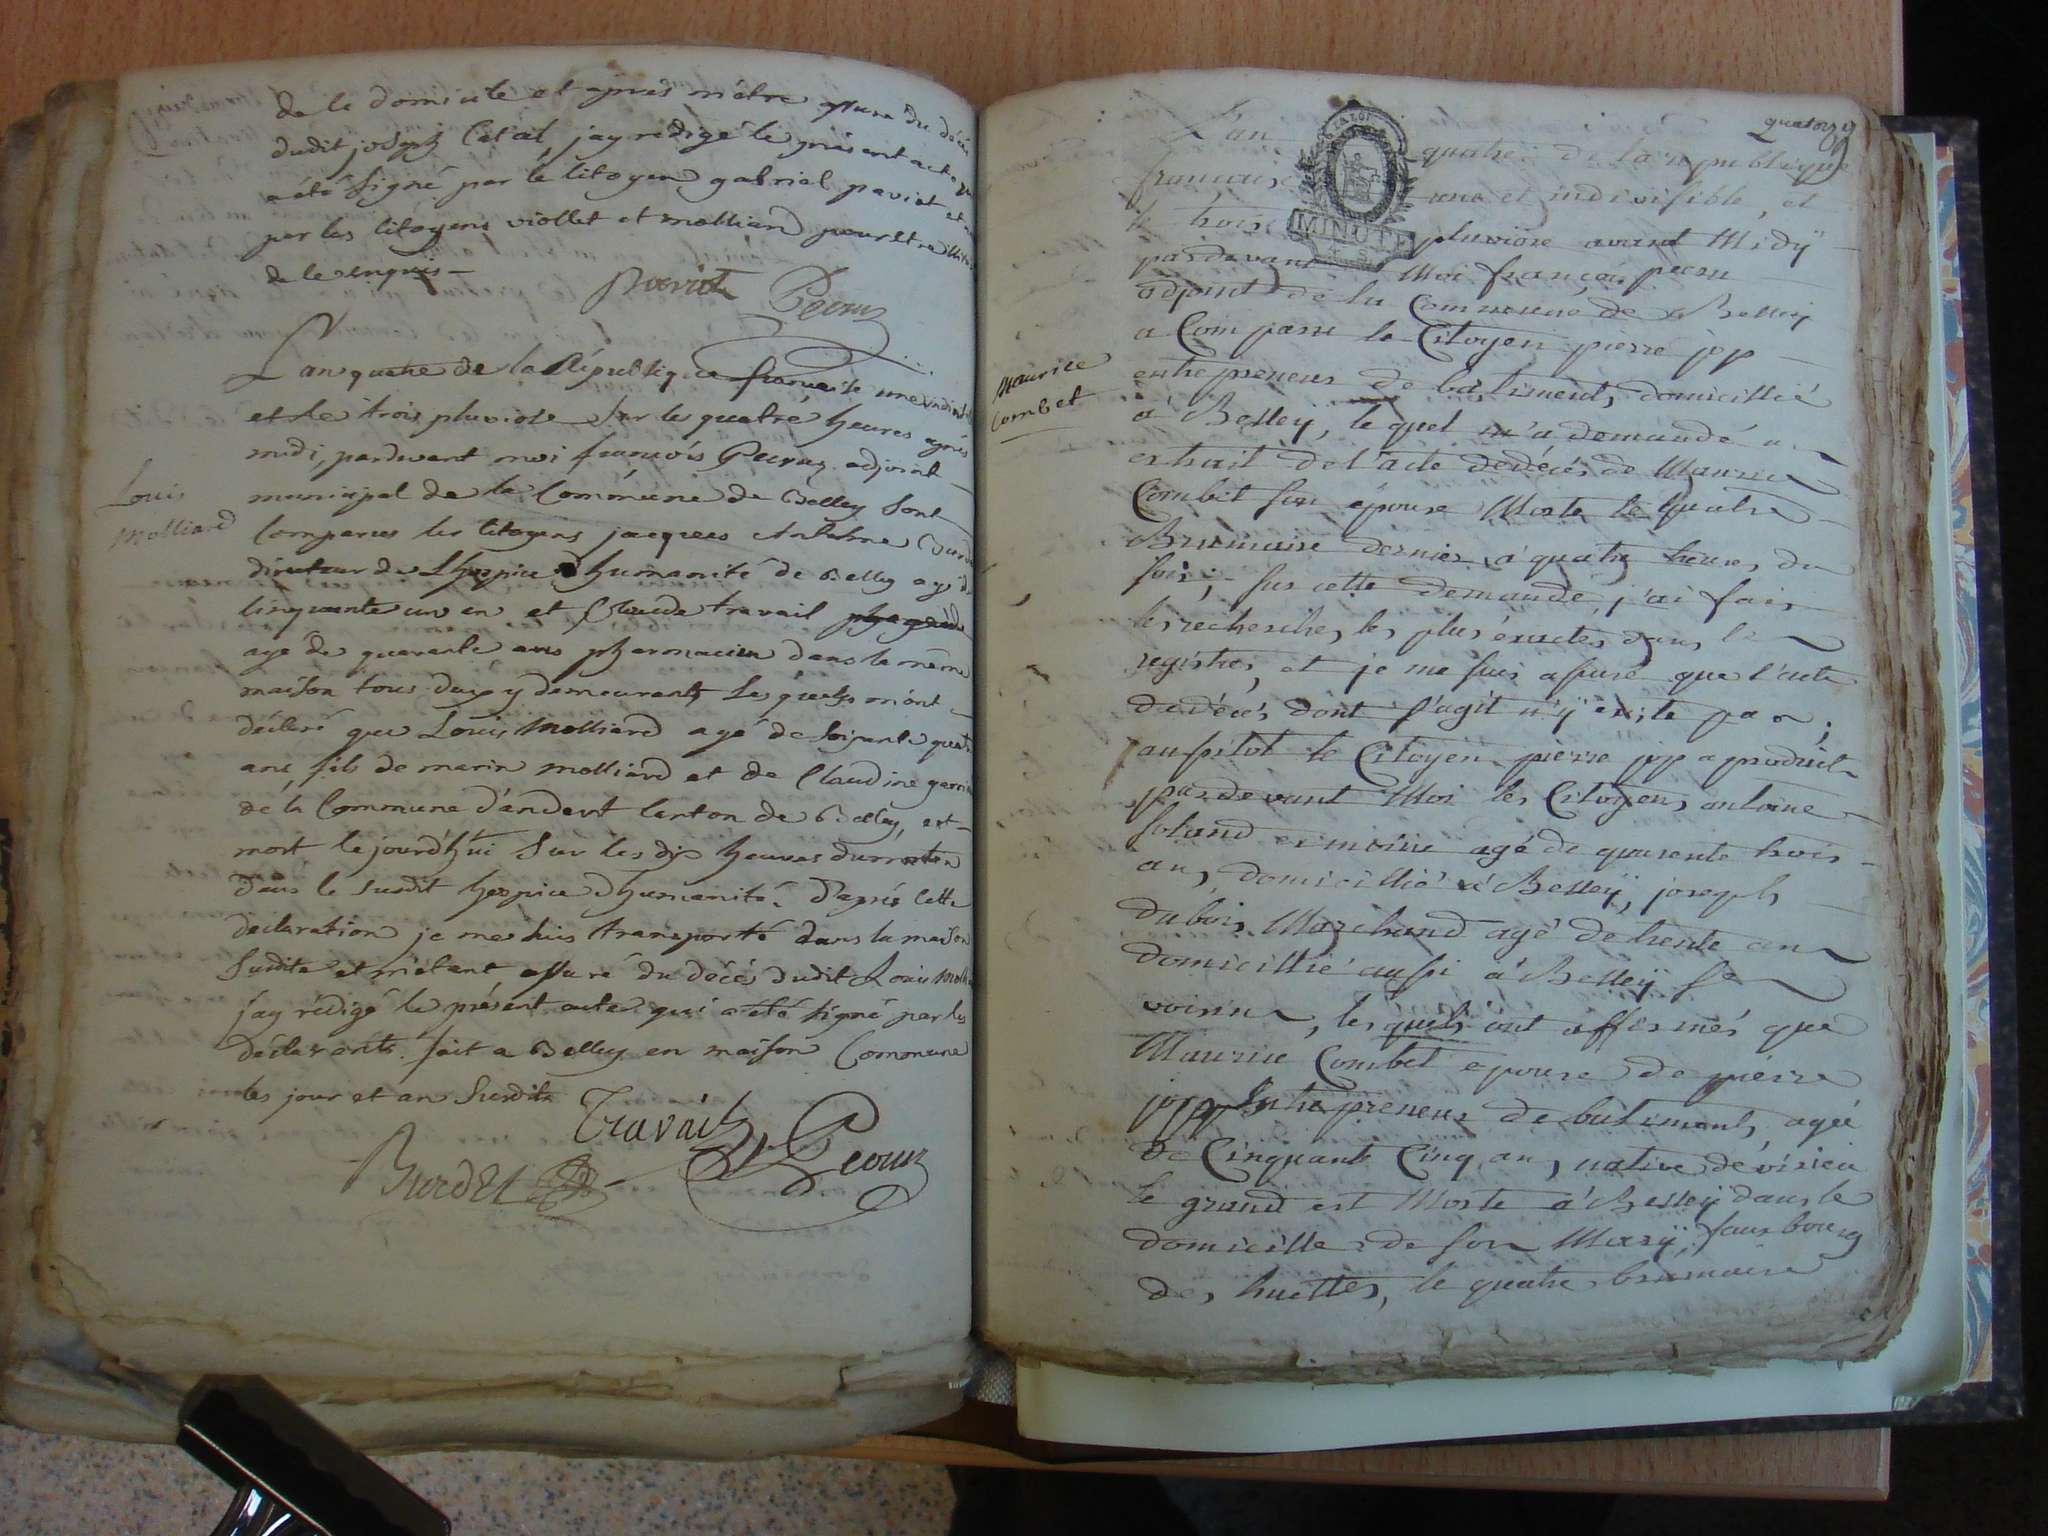 de le domicile et apres m'etre assure du décès
dudit joseph Catal, jay redigé le présent acte qui
a été signé par le citoyen gabriel paviot et
par les citoyens viollet et molliard pour
de le enquis
Paviot Pecruz
Lan quatre de la République francaise une
et le trois pluviose sur les quatre heures après
midi, pardevant moi françois Pecruz adjoint
Louis
municipal de la Commune de Belley sont
Molliard
Comparus les citoyens jacques Anthelme Burdet
directeur de Lhospice dhumanité de Belley agé de
cinquante un an et Claude travail
agé de quarante ans pharmacien dans le même
maison tous deux y demeurants lesquels m'ont
déclaré que Louis Molliard agé de soixante quatre
ans fils de marin molliard et de Claudine
de la Commune d'andert canton de Belley, est
mort lejourd'hui sur les dix heures du matin
dans le susdit hospice dhumanité. D'après cette
declaration je me suis transporté dans la maison
susdite et m'etant assuré du décès dudit Louis
j'ay rédigé le présent acte qui a été signé par les
déclarants. fait a Belley en maison Commune
les jour et an Susdits
Travail
Burdet Pecruz
quatorze
L'an quatre de la république
francaise une et indivisible, et
A LA LOI
le trois pluviose avant Midÿ
MINUTE
pardevant Moi françois pecru
adjoint de la Commune de Belley
a Comparu le Citoyen pierre jop
Maurice
Combet
entrepreneur de batiments, domicillié
a Belley, le quel m'a demandé u
extrait de l'acte de décés de Maurice
Combet son épouse Morte le quatre
Brumaire dernier a quatre heures du
soir; sur cette demande, j'ai fait
les recherches les plus éxactes dans le
registres, et je me suis assuré que l'acte
de décés dont s'agit n'ÿ existe pas;
aussitot le Citoyen pierre jop a produit
pardevant Moi les Citoyens antoine
soland agé de quarente trois
ans, domicillié a Belleÿ, joseph
dubois Marchand agé de trente an
domicillié aussi a Belleÿ se
voisins, les quels ont affirmés que
Maurice Combet épouse de piérre
jopp Entrepreneur de batiments, agée
de Cinquante Cinq ans, native de virieu
le grand est Morte a Belleÿ dans le
domicille de son Marÿ, fauxbourg
des huittes, le quatre brumaire